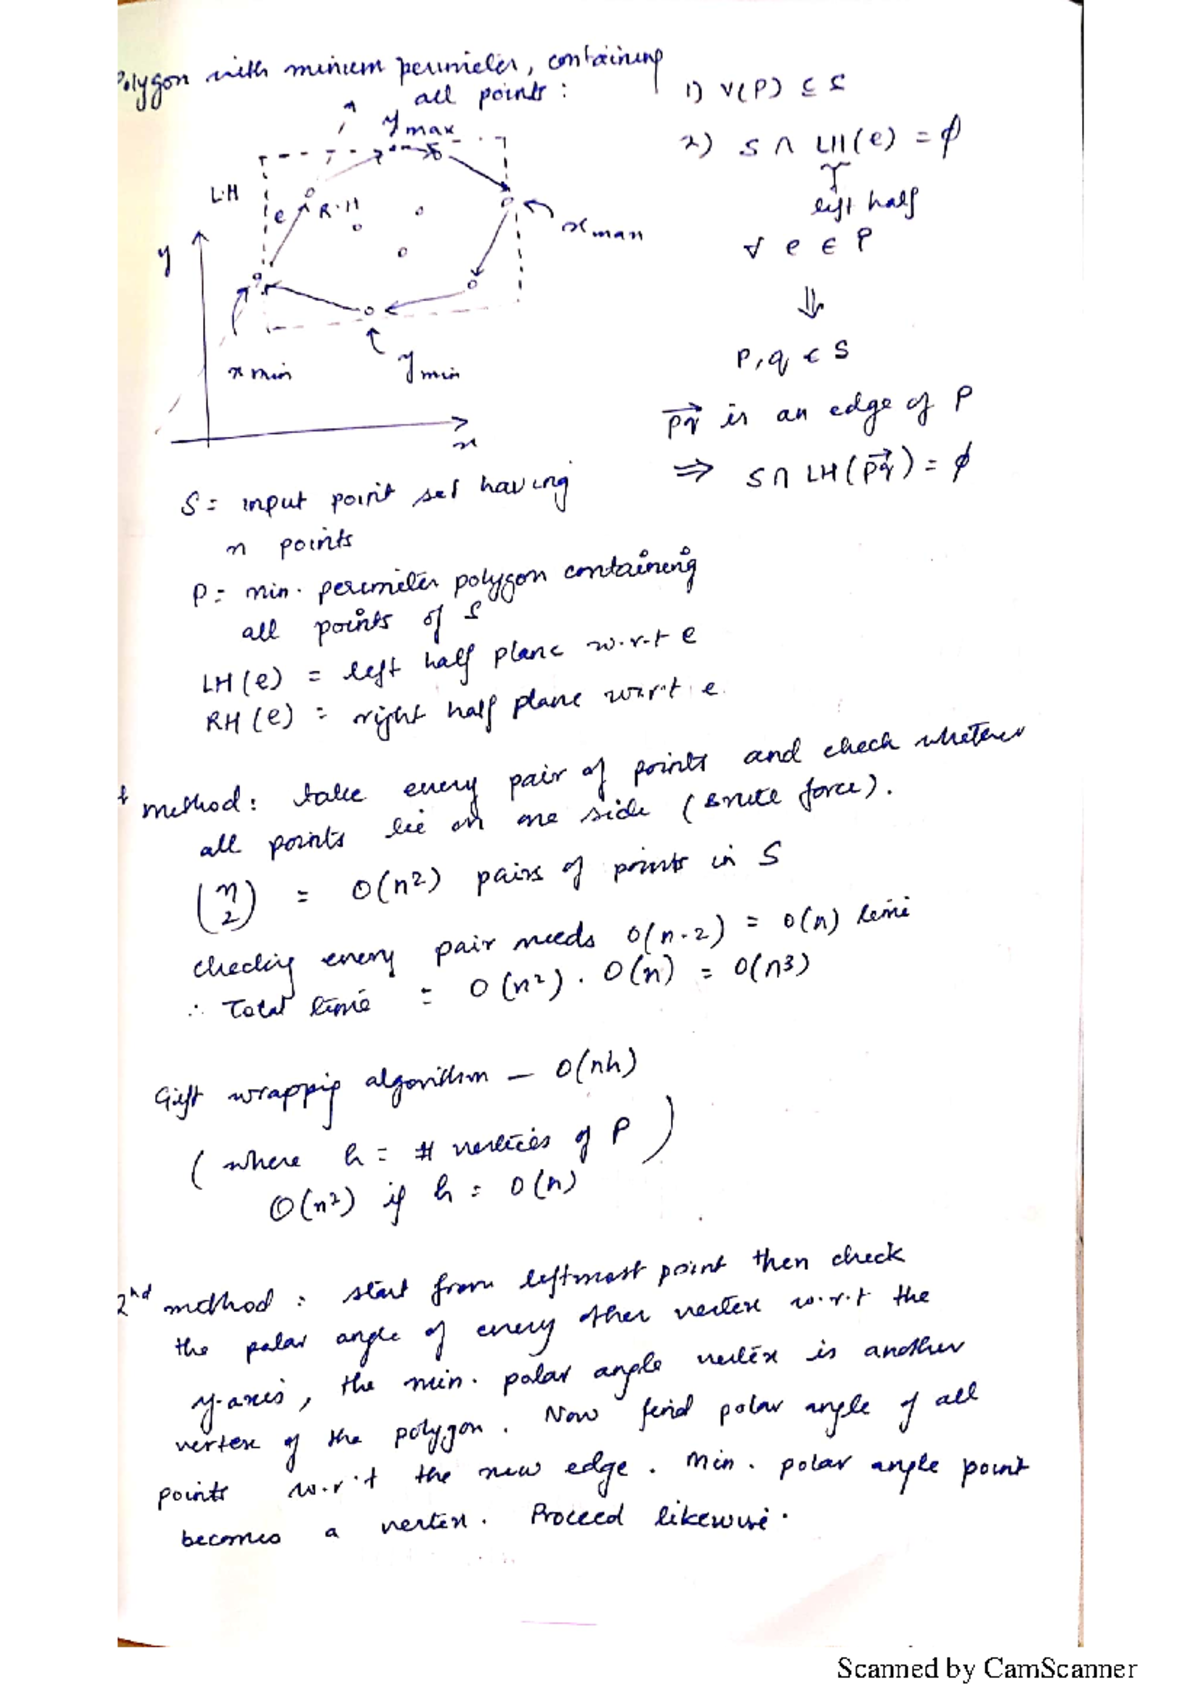 Polygon with minimum perimeter, containing
all points :
1) V(P) ⊆ S
2) S ∩ LH(e) = ϕ
left half
∀ e ∈ P
⇓
P, q ∈ S
pq is an edge of P
⇒ S ∩ LH(pq) = ϕ
y max
L.H
e R.H
x man
y
x min
y min
x
S = input point set having
n points
P = min. perimeter polygon containing
all points of S
LH(e) = left half plane w.r.t e
RH(e) = right half plane w.r.t. e
method : take every pair of points and check whether
all points lie on one side (Brute force).
(n 2) = O(n²) pairs of points in S
checking every pair needs O(n-2) = O(n) time
∴ Total time = O(n²) . O(n) = O(n3)
Gift wrappig algorithm – O(nh)
(where h = # vertices of P)
O(n²) if h = O(n)
2nd method : start from leftmost point then check
the polar angle of every other vertex w.r.t the
y-axis, the min. polar angle vertex is another
vertex of the polygon. Now find polar angle of all
points w.r.t the new edge. Min. polar angle point
becomes a vertex. Proceed likewise.
Scanned by CamScanner